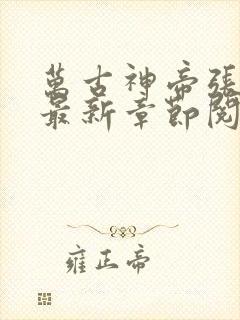 萬古神帝張
最新章節閱
雍正帝